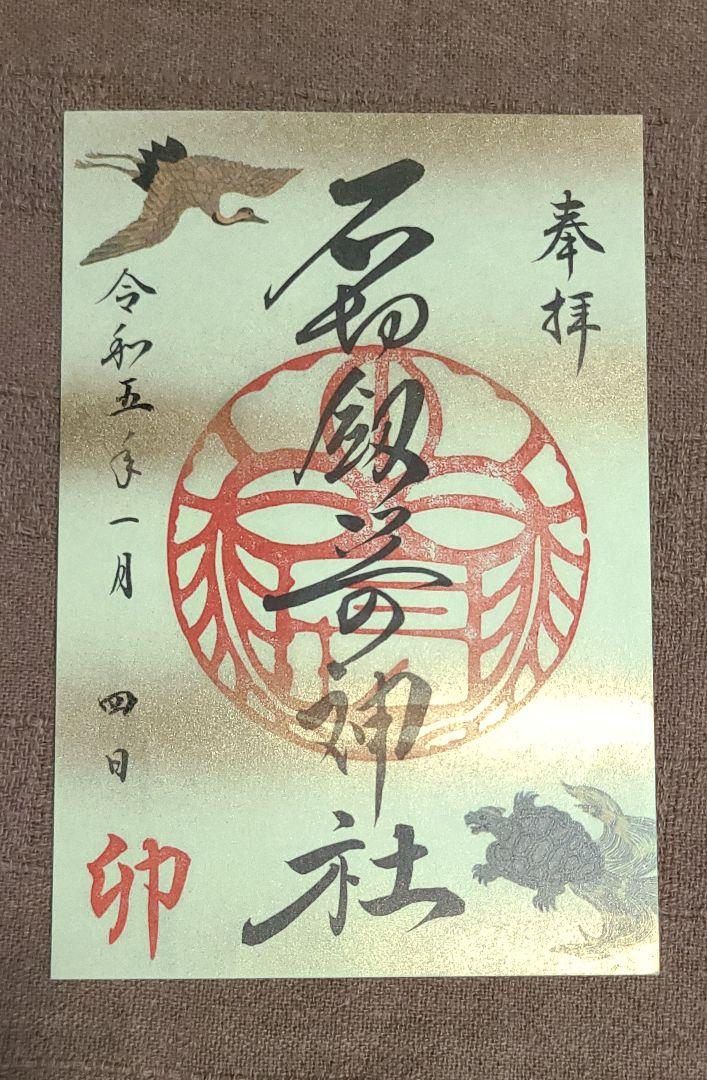 奉拝
石切劔箭神社
令和五年一月四日
卯